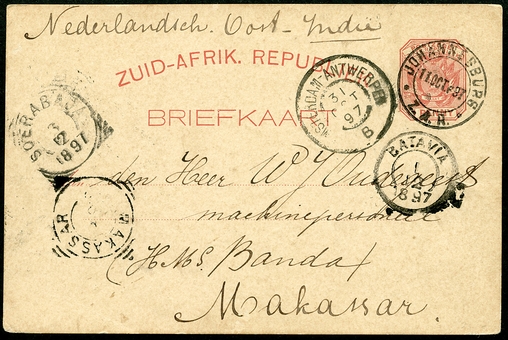 Nederlandsch. Oost-Indie
ZUID-AFRIK. REPU
BRIEFKAART
JOHANNESBURG
11 OCT 97
Z.A.R.
DAM-ANTWERPEN
31
97
B
SOERABAJA
12
1897
BATAVIA
1
12
1897
MAKASSAR
den Heer W J
machinepersoneel
(H.M.S. Banda)
Makassar.